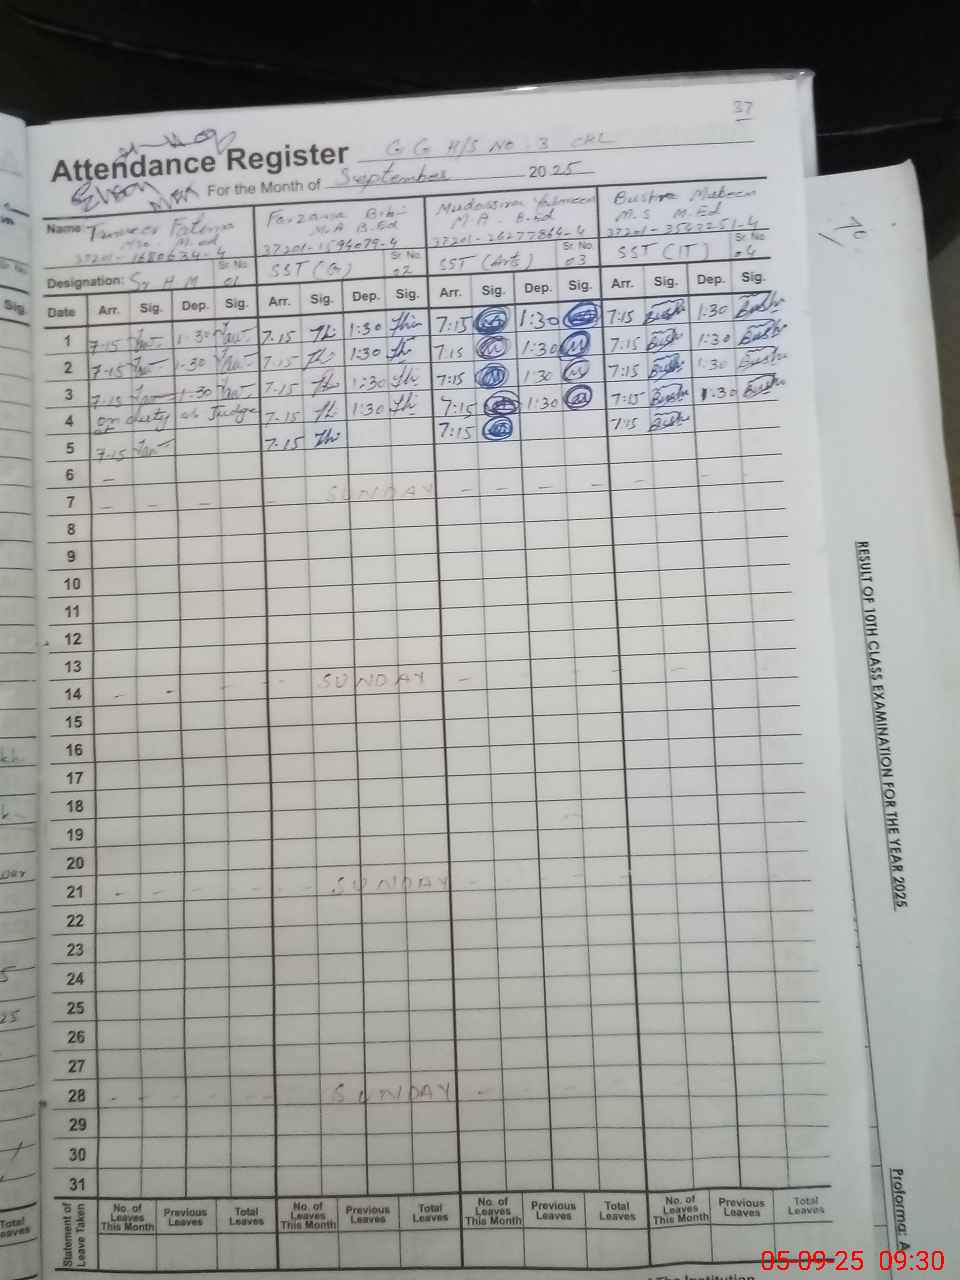 37
Attendance Register G G H/S No. 3 CKL
For the Month of September 2025
Name: Tanveer Fatima Farzana Bibi Mudassira Yasmeen Bushra Mubeen
M.ed M.A B.Ed M.A. B.Ed M.S M.Ed
37201-1594079-4
Sr No. Sr No. Sr No. Sr No.
Designation: Sr H M 01 SST (G) 02 SST (Arts) 03 SST (IT) 04
Date Arr. Sig. Dep. Sig. Arr. Sig. Dep. Sig. Arr. Sig. Dep. Sig. Arr. Sig. Dep. Sig.
1 7-15 1-30 7.15 1:30 7:15 1:30 7:15 1:30
2 7-15 1-30 7.15 1:30 7:15 1:30 7:15 1:30
3 7-15 1-30 7.15 1:30 7:15 1:30 7:15 1:30
4 on duty as Judge 7.15 1:30 7:15 1:30 7:15 1:30
5 7-15 7.15 7:15 7:15
6 –
7 – – – – SUNDAY – – – – – – –
8
9
10
11
12
13
14 – - – - SUNDAY –
15
16
17
18
19
20
21 - – - - - SUNDAY - - - - –
22
23
24
25
26
27
28 - - - - - SUNDAY –
29
30
31
Statement of Leave Taken
No. of Leaves This Month Previous Leaves Total Leaves No. of Leaves This Month Previous Leaves Total Leaves No. of Leaves This Month Previous Leaves Total Leaves No. of Leaves This Month Previous Leaves Total Leaves
The Institution
RESULT OF 10TH CLASS EXAMINATION FOR THE YEAR 2025
Proforma: A
Sig.
25
Total
Leaves
05-09-25 09:30